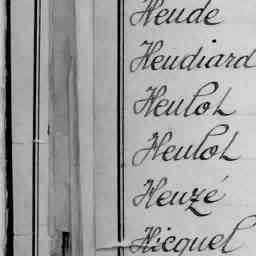 Heude
Heudiard
Heulot
Heulot
Heuzé
Hicquel